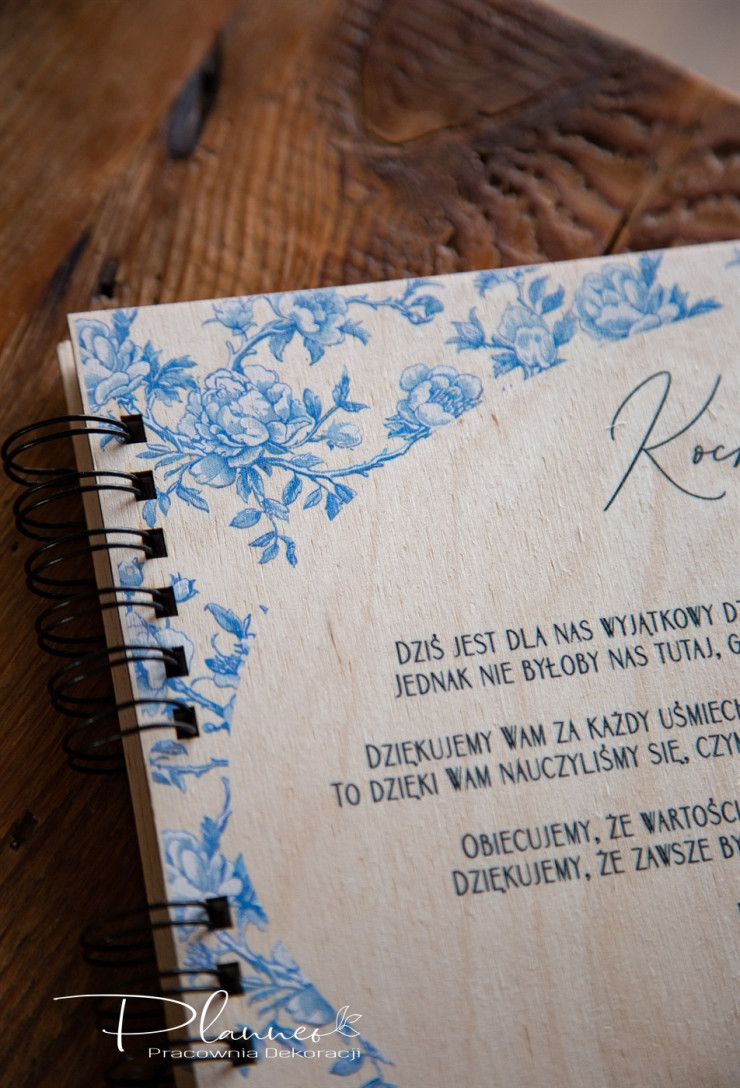 DZIŚ JEST DLA NAS WYJĄTKOWY
JEDNAK NIE BYŁOBY NAS TUTAJ,
DZIĘKUJEMY WAM ZA KAŻDY
TO DZIĘKI WAM NAUCZYLIŚMY SIĘ,
OBIECUJEMY, ŻE
DZIĘKUJEMY, ŻE ZAWSZE
Planneo
Pracownia Dekoracji